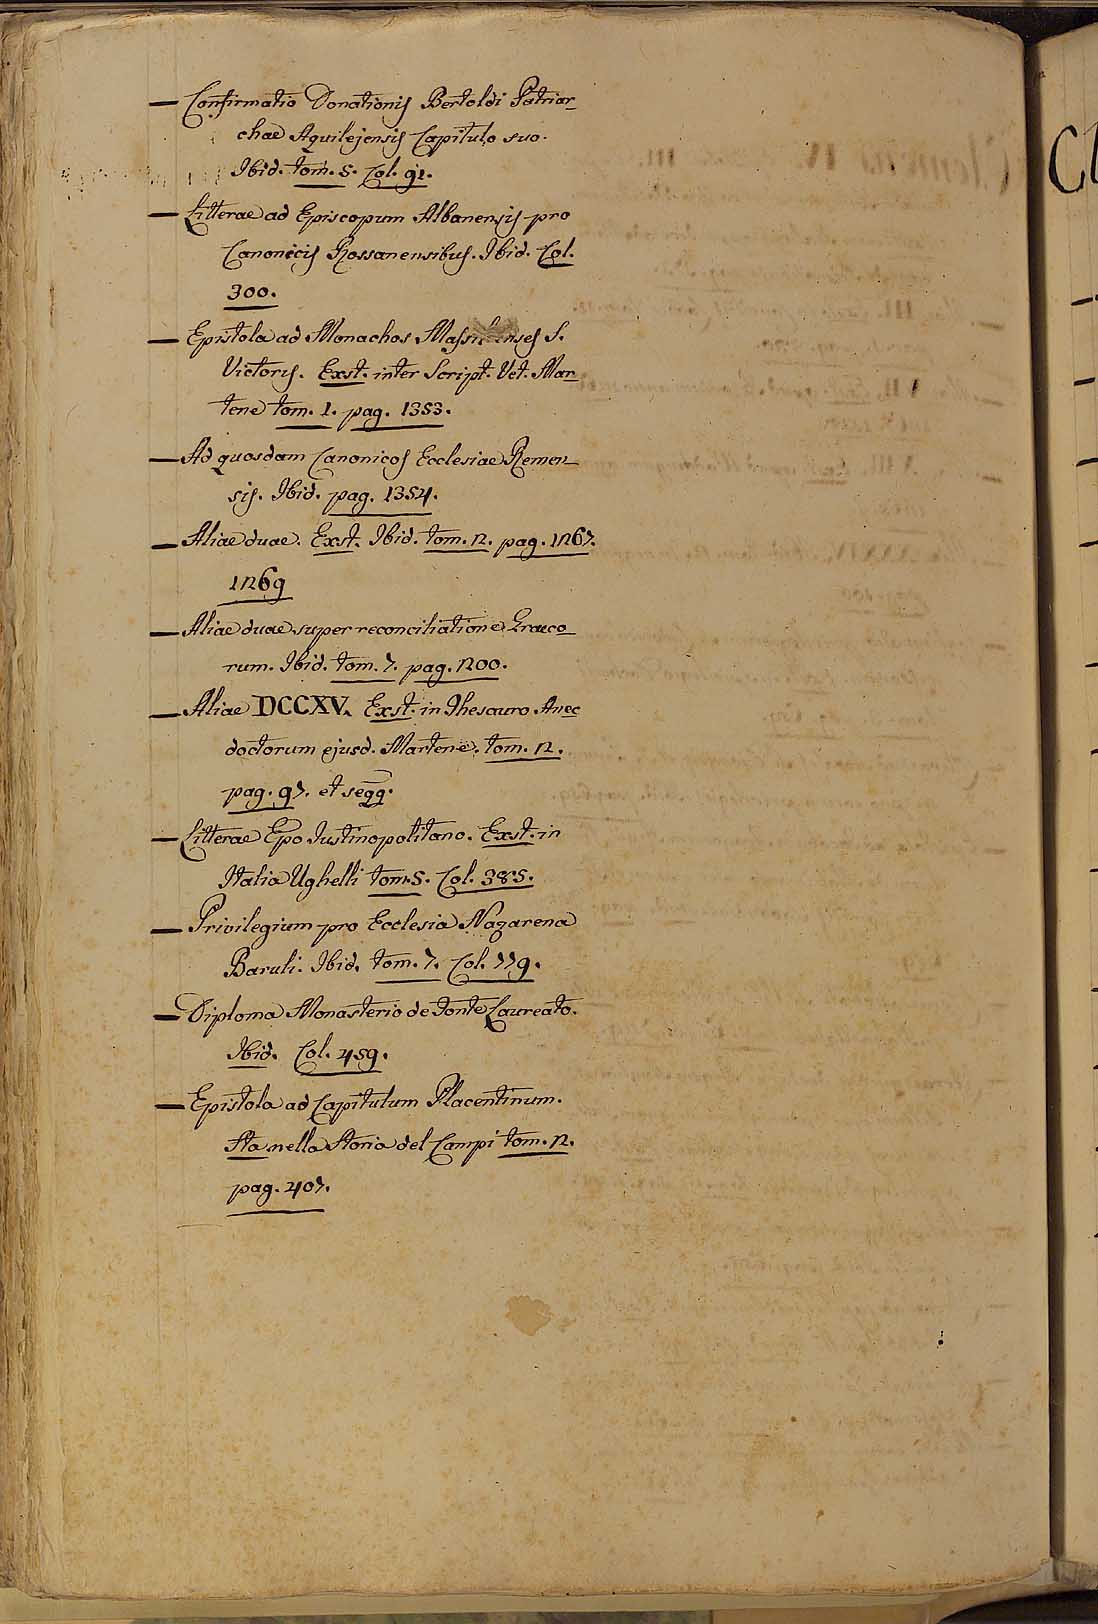 — Confirmatio Donationis Bertoldi Patriar-
chae Aquilejensis Capitulo suo.
Ibid. tom. 5. Col. 91.
— Litterae ad Episcopum Albanensis pro
Canonicis Rossanensibus. Ibid. Col.
300.
— Epistola ad Monachos Massilienses S.
Victoris. Exst. inter Script. Vet. Mar-
tene tom. 1. pag. 1353.
— Ad quosdam Canonicos Ecclesiae Remen-
sis. Ibid. pag. 1354.
— Aliae duae. Exst. Ibid. tom. 2. pag. 1267.
1269
— Aliae duae super reconciliatione Graeco-
rum. Ibid. tom. 7. pag. 200.
— Aliae DCCXV. Exst. in Thesauro Anec-
doctorum ejusd. Martene. tom. 2.
pag. 97. et seqq.
— Litterae Epo Justinopolitano. Exst. in
Italia Ughelli tom. 5. Col. 385.
— Privilegium pro Ecclesia Nazarena
Baruli. Ibid. tom. 7. Col. 779.
— Diploma Monasterio de Fonte Laureato.
Ibid. Col. 459.
— Epistola ad Capitulum Placentinum.
Sta nella Storia del Campi tom. 2.
pag. 407.
Cl